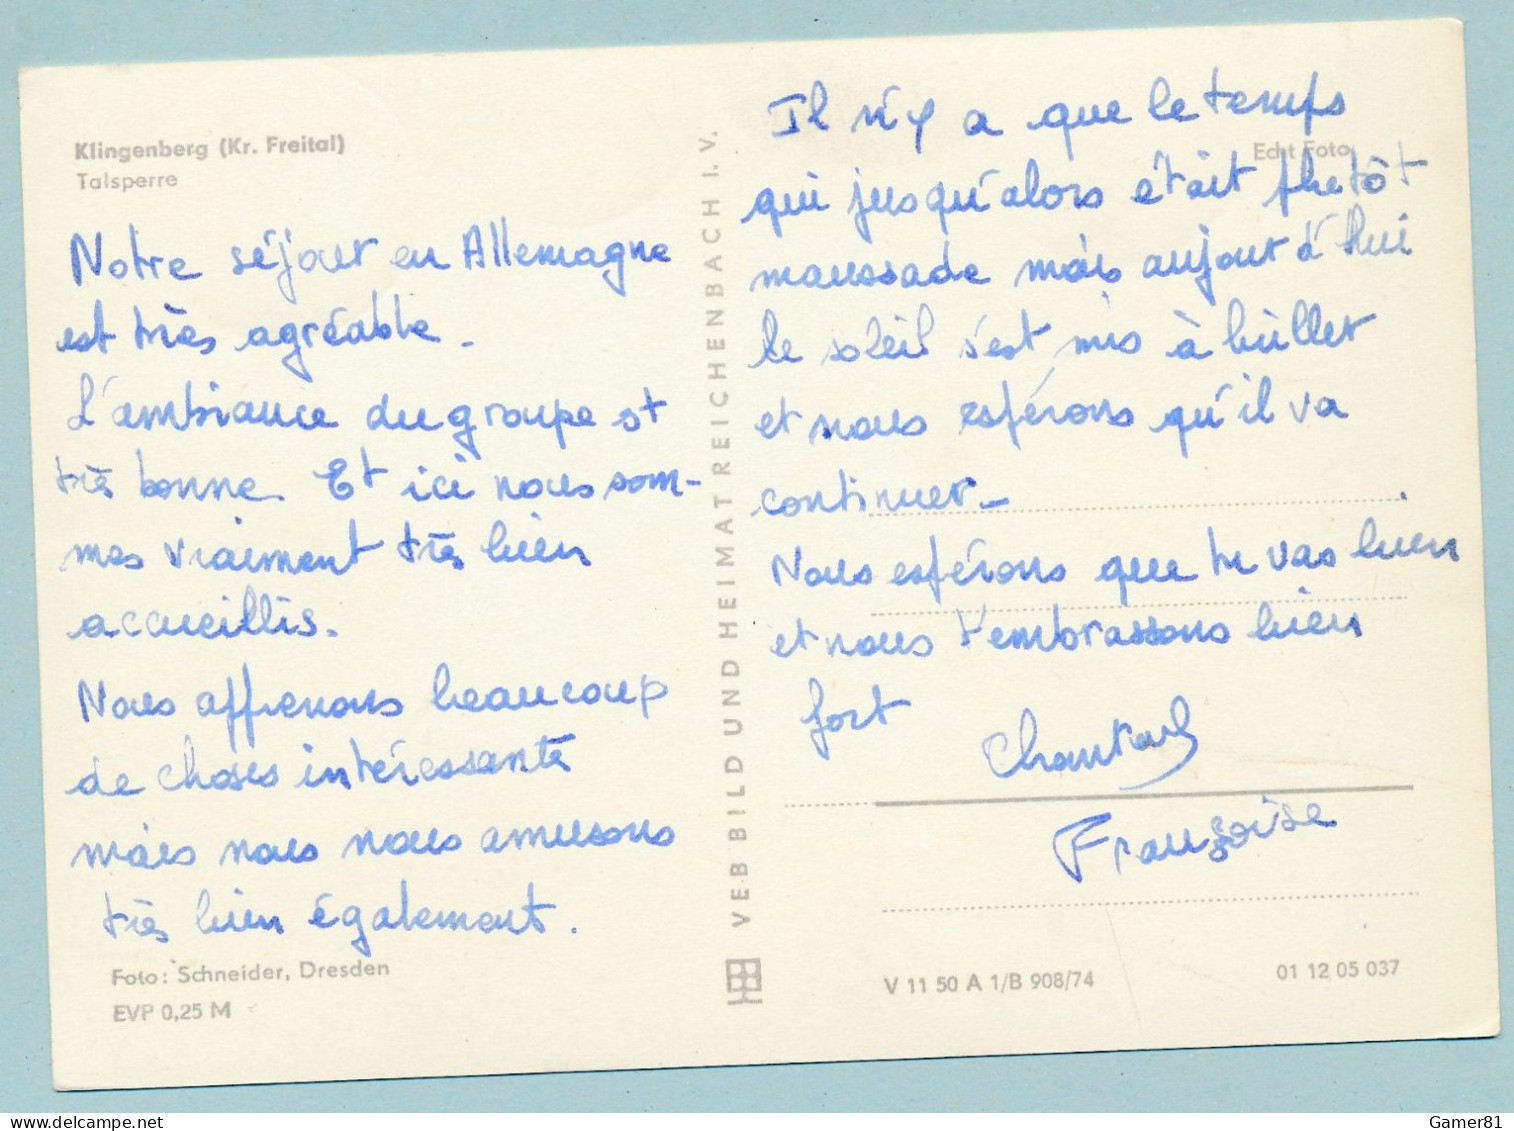 Klingenberg (Kr. Freital)
Talsperre
Notre séjour en Allemagne
est très agréable.
L'ambiance du groupe est
très bonne. Et ici nous som-
mes vraiment très bien
accueillis.
Nous apprenons beaucoup
de choses intéressante
mais nous nous amusons
très bien également.
Foto: Schneider, Dresden
EVP 0,25 M
VEB BILD UND HEIMAT REICHENBACH I. V.
Echt Foto
Il n'y a que le temps
qui jusqu'alors était plutôt
maussade mais aujourd'hui
le soleil s'est mis à briller
et nous espérons qu'il va
continuer.
Nous espérons que tu vas bien
et nous t'embrassons bien
fort
Chantal
Françoise
V 11 50 A 1/B 908/74
01 12 05 037
Gamer81